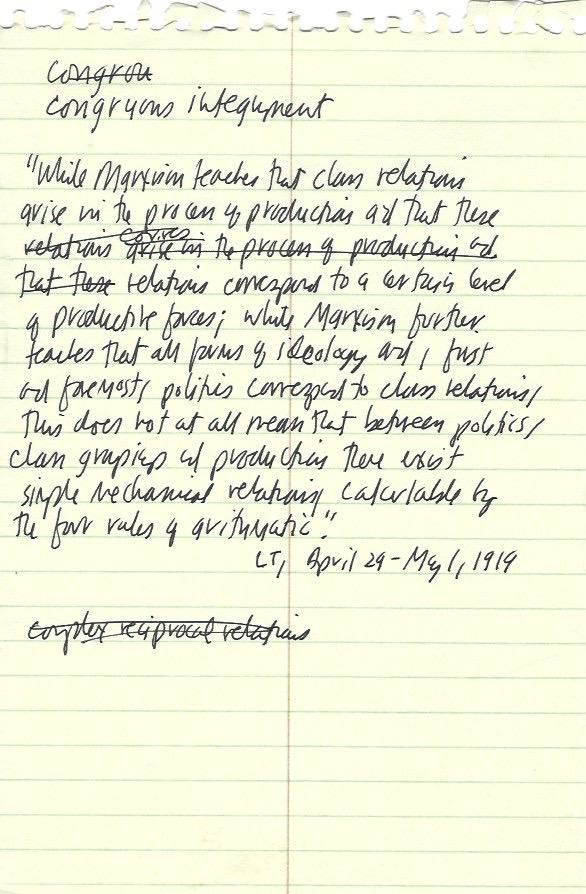 Congrou
congruous integument
"While Marxism teaches that class relations
arise in the process of production and that these
relations arise in the process of production and
that these relations correspond to a certain level
of productive forces; while Marxism further
teaches that all forms of ideology and, first
and foremost, politics correspond to class relations,
this does not at all mean that between politics,
class groupings and production there exist
simple mechanical relations, calculable by
the four rules of arithmatic."
LT, April 29-May 1, 1919
complex reciprocal relations